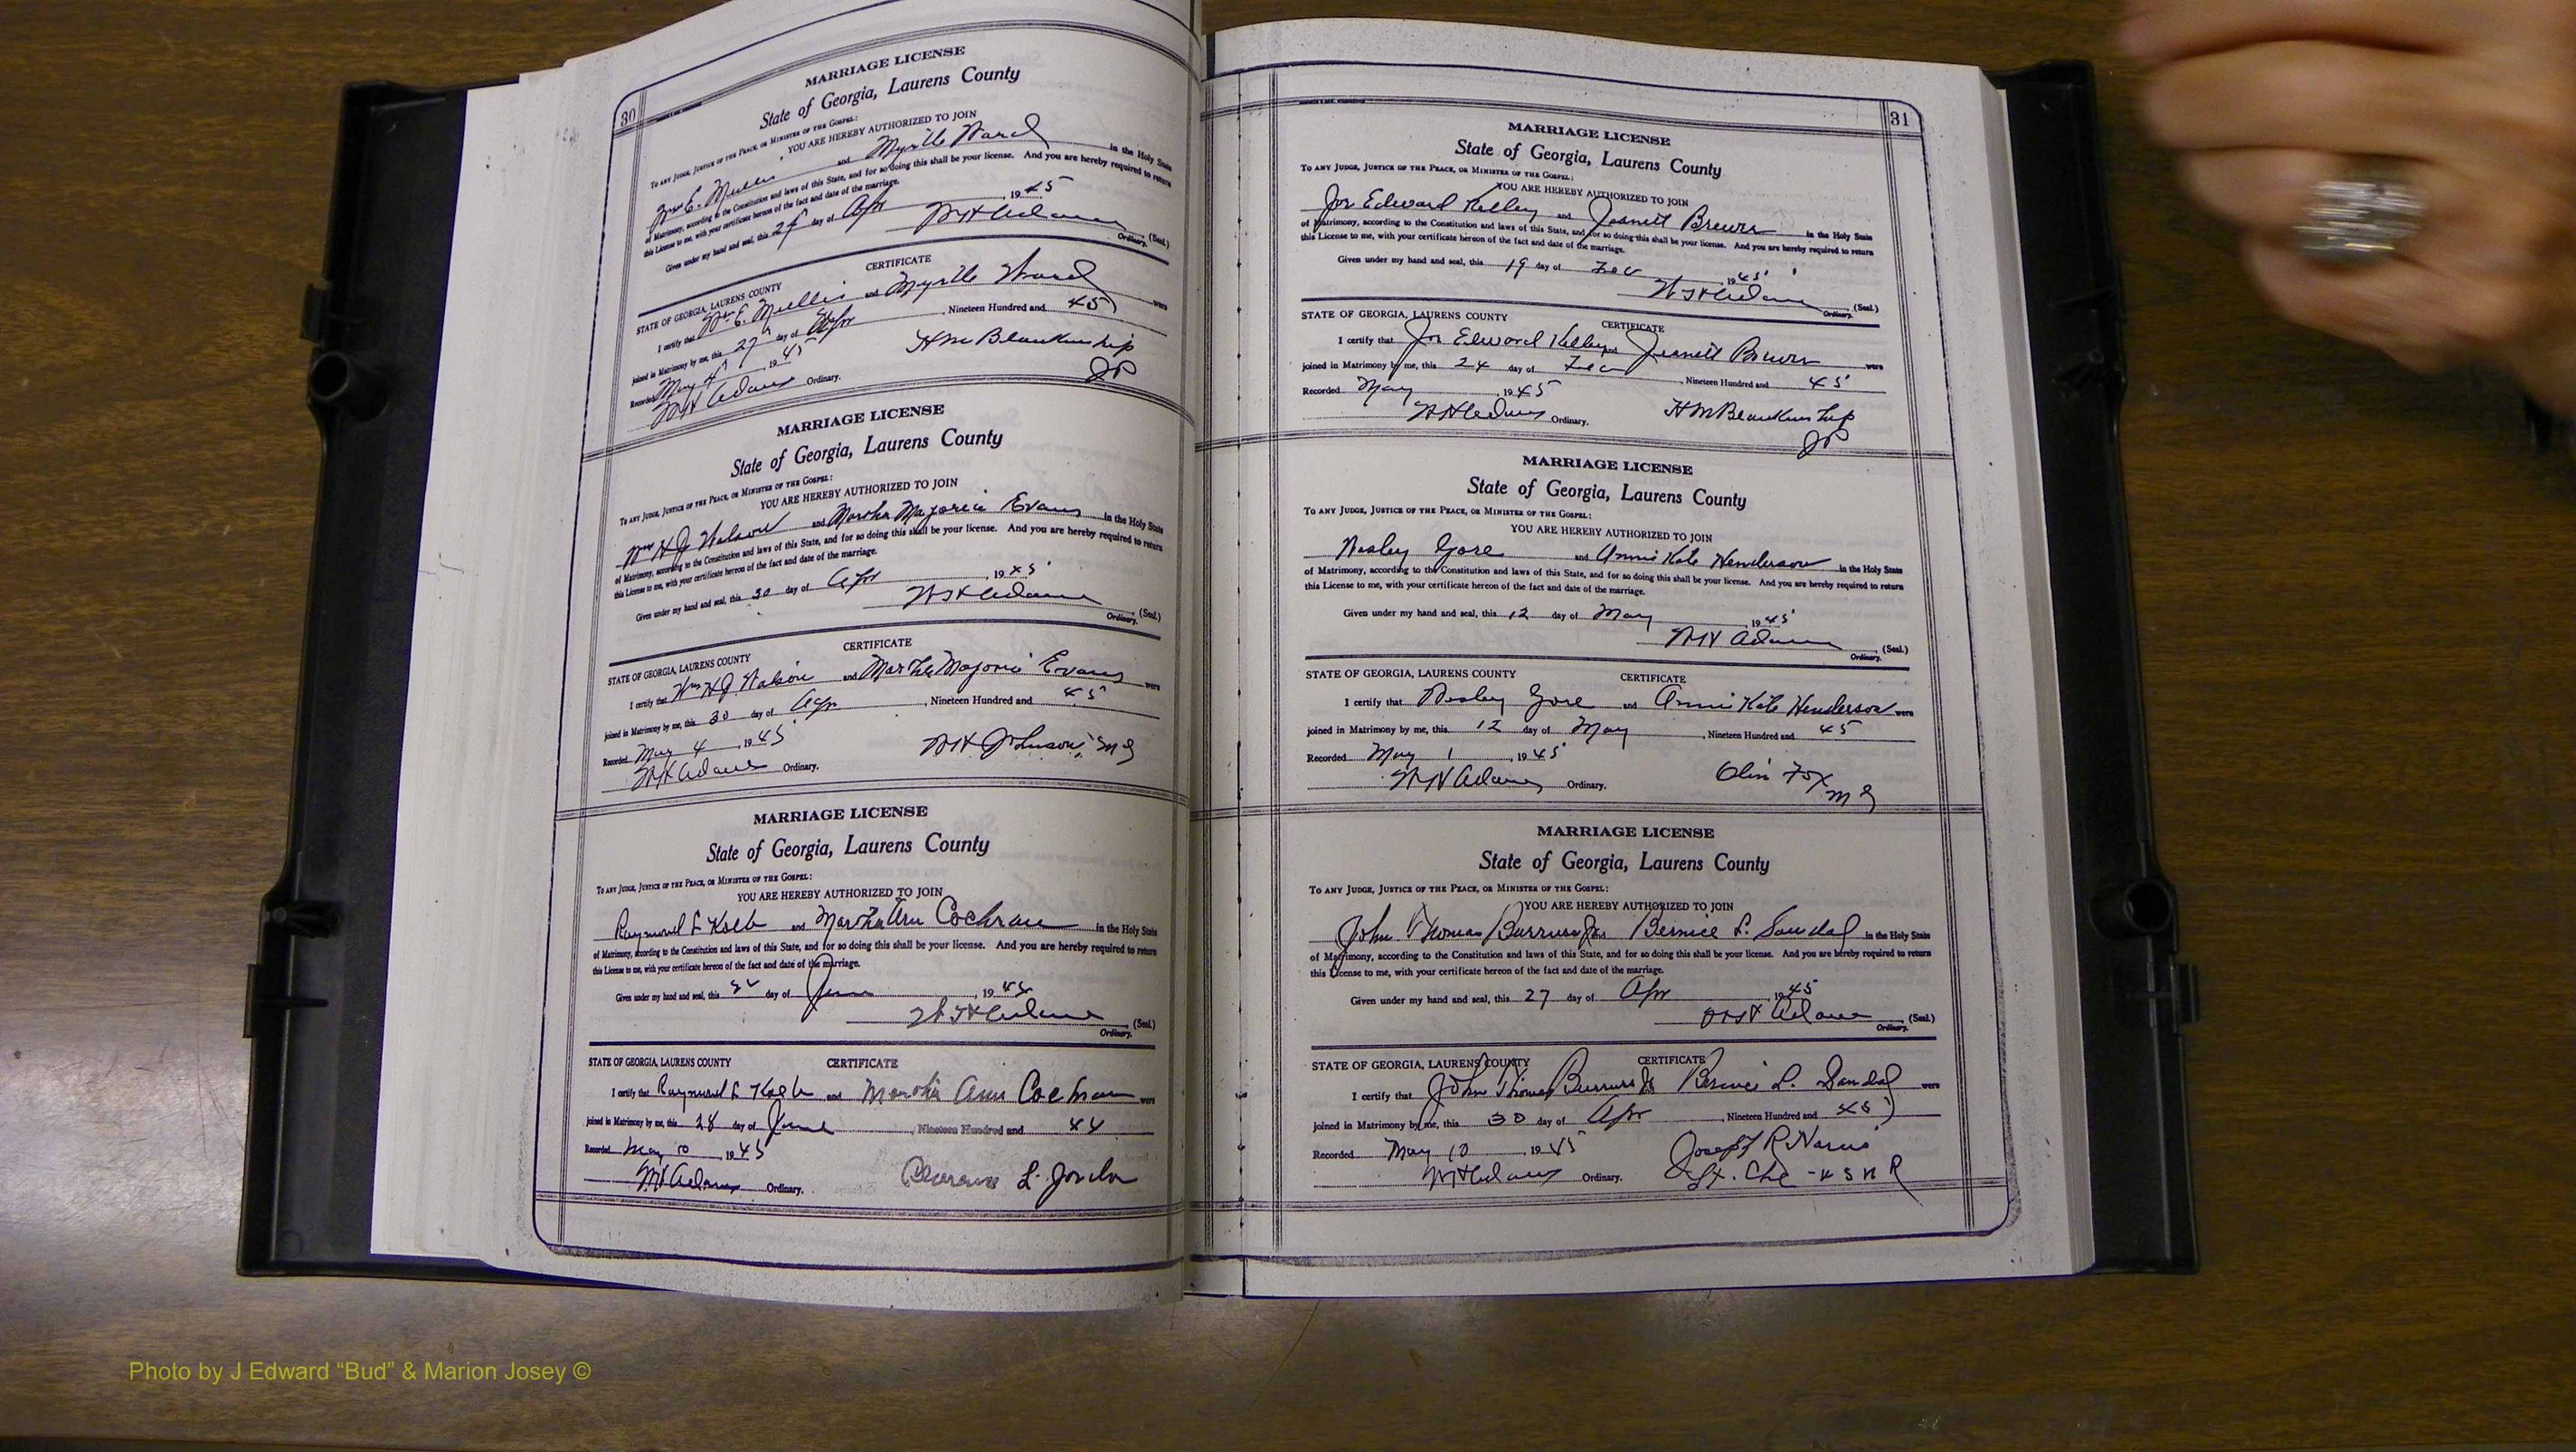 30
MARRIAGE LICENSE
State of Georgia, Laurens County
TO ANY JUDGE, JUSTICE OF THE PEACE, OR MINISTER OF THE GOSPEL:
YOU ARE HEREBY AUTHORIZED TO JOIN
Wm E. Mullis and Myrtle Ward in the Holy State
of Matrimony, according to the Constitution and laws of this State, and for so doing this shall be your license. And you are hereby required to return
this License to me, with your certificate hereon of the fact and date of the marriage.
Given under my hand and seal, this day of Apr, 1945
WH Adams (Seal.)
Ordinary.
CERTIFICATE
STATE OF GEORGIA, LAURENS COUNTY
I certify that Wm E. Mullis and Myrtle Ward were
joined in Matrimony by me, this 27 day of Apr, Nineteen Hundred and 45
Recorded May 4, 1945 HM Blankenship
WH Adams Ordinary. JP
MARRIAGE LICENSE
State of Georgia, Laurens County
TO ANY JUDGE, JUSTICE OF THE PEACE, OR MINISTER OF THE GOSPEL:
YOU ARE HEREBY AUTHORIZED TO JOIN
Wm H J Watson and Martha Marjorie Evans in the Holy State
of Matrimony, according to the Constitution and laws of this State, and for so doing this shall be your license. And you are hereby required to return
this License to me, with your certificate hereon of the fact and date of the marriage.
Given under my hand and seal, this 30 day of Apr, 1945
WH Adams (Seal.)
Ordinary.
CERTIFICATE
STATE OF GEORGIA, LAURENS COUNTY
I certify that Wm H J Watson and Martha Marjorie Evans were
joined in Matrimony by me, this 30 day of Apr, Nineteen Hundred and 45
Recorded May 4, 1945 Johnson, MG
WH Adams Ordinary.
MARRIAGE LICENSE
State of Georgia, Laurens County
TO ANY JUDGE, JUSTICE OF THE PEACE, OR MINISTER OF THE GOSPEL:
YOU ARE HEREBY AUTHORIZED TO JOIN
Raymond L Kolb and Martha Ann Cochran in the Holy State
of Matrimony, according to the Constitution and laws of this State, and for so doing this shall be your license. And you are hereby required to return
this License to me, with your certificate hereon of the fact and date of the marriage.
Given under my hand and seal, this day of June, 19
WH Adams (Seal.)
Ordinary.
STATE OF GEORGIA, LAURENS COUNTY CERTIFICATE
I certify that Raymond L Kolb and Martha Ann Cochran were
joined in Matrimony by me, this 28 day of June, Nineteen Hundred and 44
Recorded May 10, 1945
WH Adams Ordinary. Clarence L. Jordan
31
MARRIAGE LICENSE
State of Georgia, Laurens County
TO ANY JUDGE, JUSTICE OF THE PEACE, OR MINISTER OF THE GOSPEL:
YOU ARE HEREBY AUTHORIZED TO JOIN
Joe Edward Kelley and Jeanett Brewer in the Holy State
of Matrimony, according to the Constitution and laws of this State, and for so doing this shall be your license. And you are hereby required to return
this License to me, with your certificate hereon of the fact and date of the marriage.
Given under my hand and seal, this 19 day of, 1945
WH Adams (Seal.)
Ordinary.
STATE OF GEORGIA, LAURENS COUNTY CERTIFICATE
I certify that Joe Edward Kelley and Jeanett Brewer were
joined in Matrimony by me, this 24 day of, Nineteen Hundred and 45
Recorded May, 1945 HM Blankenship
WH Adams Ordinary. JP
MARRIAGE LICENSE
State of Georgia, Laurens County
TO ANY JUDGE, JUSTICE OF THE PEACE, OR MINISTER OF THE GOSPEL:
YOU ARE HEREBY AUTHORIZED TO JOIN
Wesley Gore and Annie Kate Henderson in the Holy State
of Matrimony, according to the Constitution and laws of this State, and for so doing this shall be your license. And you are hereby required to return
this License to me, with your certificate hereon of the fact and date of the marriage.
Given under my hand and seal, this 12 day of May, 1945
WH Adams (Seal.)
Ordinary.
STATE OF GEORGIA, LAURENS COUNTY CERTIFICATE
I certify that Wesley Gore and Annie Kate Henderson were
joined in Matrimony by me, this 12 day of May, Nineteen Hundred and 45
Recorded May 1, 1945
WH Adams Ordinary. Olin Fox
MG
MARRIAGE LICENSE
State of Georgia, Laurens County
TO ANY JUDGE, JUSTICE OF THE PEACE, OR MINISTER OF THE GOSPEL:
YOU ARE HEREBY AUTHORIZED TO JOIN
John Thomas Burruss Jr Bernice L. Sandal in the Holy State
of Matrimony, according to the Constitution and laws of this State, and for so doing this shall be your license. And you are hereby required to return
this License to me, with your certificate hereon of the fact and date of the marriage.
Given under my hand and seal, this 27 day of Apr, 1945
WH Adams (Seal.)
Ordinary.
STATE OF GEORGIA, LAURENS COUNTY CERTIFICATE
I certify that John Thomas Burruss Jr Bernice L. Sandal were
joined in Matrimony by me, this 30 day of Apr, Nineteen Hundred and 45
Recorded May 10, 1945 Joseph R.
WH Adams Ordinary.
Photo by J Edward “Bud” & Marion Josey ©